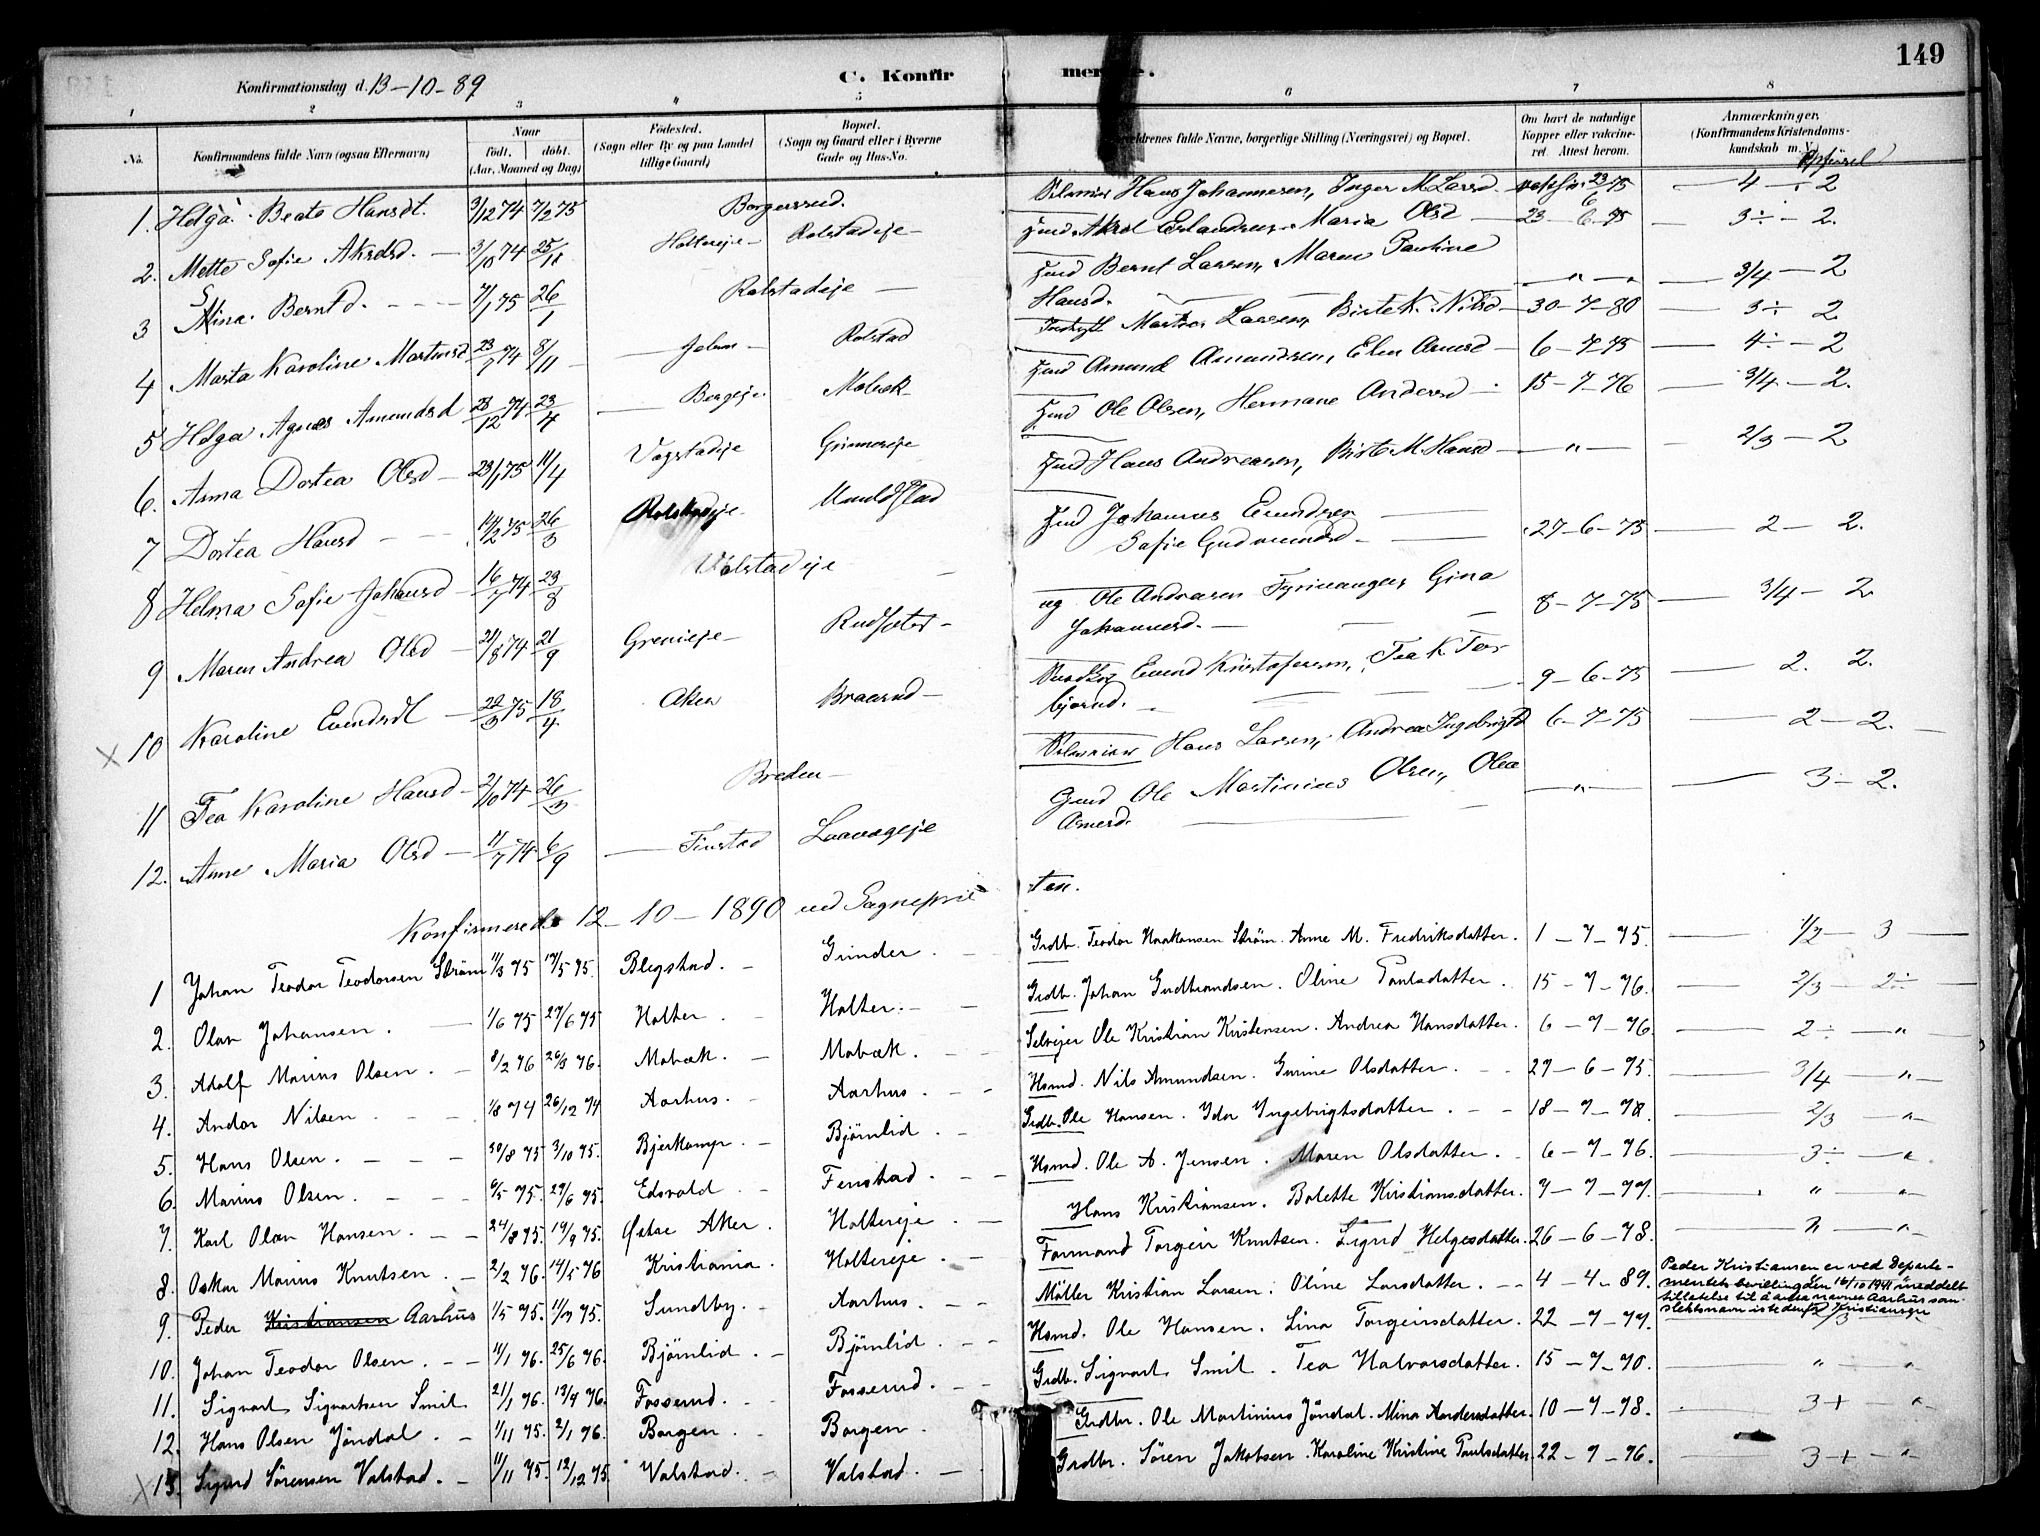 149
Konfirmationsdag d. 13-10-89
C. Konfir
1 2 3 4 5 6 7 8
No.
Konfirmandens fulde Navn (ogsaa Efternavn)
Naar
født. døbt.
(Aar, Maaned og Dag)
Fødested.
(Sogn eller By og paa Landet tillige Gaard)
Bopæl.
(Sogn og Gaard eller i Byerne Gade og Hus-No.
fulde Navne, borgerlige Stilling (Næringsvei) og Bopæl.
Om havt de naturlige Kopper eller vakcineret. Attest herom.
Anmærkninger.
(Konfirmandens Kristendomskundskab m. V.)
Opførsel
1. Helga Beate Hansdt. 3/12 74 7/2 75 Borgersrud. Hans Johannesen, Inger M. Larsd. 23/6 75 — 4 ÷ 2
2. Mette Sofie Akselsd. — 3/10 74 25/11 Holtereje — Rolstadeje — Aksel Erlandsen, Maria Olsd — 23 - 6 - 75 — 3 ÷ - 2.
3 Mina Berntd. 7/1 75 26/1 Rolstadeje — Bernt Larsen, Maren Pauline Hansd. — " — 3/4 — 2
4 Marta Karoline Martinsd 23/7 74 8/11 — Rolstad Larsen, Birte K. Nilsd — 30 - 7 - 80 — 3 ÷ 2
5 Helga Agnes Amundsd 23/12 74 23/4 — Mobæk Amund Amundsen, Elen Arnesd — 6 - 7 - 75 — 4 ÷ - 2
6. Anna Dortea Olsd — 23/1 75 11/4 Vogstadeje Ole Olsen, Hermane Andersd — 15 - 7 - 76 — 3/4 — 2.
7 Dortea Hansd 14/2 75 26/3 Hans Andreasen, Birte M. Hansd — " — 2/3 — 2
8 Helma Sofie Johansd — 16/7 74 23/8 Valstadeje Johannes Evindsen Sofie Gudmundsd — 27 - 6 - 75 — 2 — 2.
9 Maren Andrea Olsd — 21/8 74 21/9 Greneieje — Rudsæter — Ole Andreasen Gina Johannesd. — 8 - 7 - 75 — 3/4 — 2
10 Karoline Evindsdt — 22/3 75 18/4 Aker Braarud — Evend Kristofersen, Tea K. Torbjørnsd. — 9 - 6 - 75 — 2. 2.
11 Tea Karoline Hansd — 2/10 74 26/3 Breden — Hans Larsen, Andrea Ingebrigtd 6 - 7 - 75 — 2 — 2.
12. Anne Maria Olsd — 11/7 74 6/9 — Finstad Ole Martinius Olsen, Olea Arnesd. — " — 3 — 2.
Konfirmerede 12-10-1890 ved Sognepresten.
1 Johan Teodor Teodorsen Strøm 11/3 75 17/5 75. Blegstad. — Grinder. Grdb. Teodor Haakonsen Strøm. Anne M. Fredriksdatter. 1 - 7 - 75. — 1/2 — 3 —
2. Olav Johansen. — 1/6 75 27/6 75 Holter. — Holter. — Grdb. Johan Gudbrandsen. Oline Paulsdatter. 15 - 7 - 76. — 2/3 — 2 ÷ —
3. Adolf Marius Olsen. — 8/2 76 26/3 76. Mobæk. — Mobæk. — Selvejer Ole Kristian Kristensen. Andrea Hansdatter. 6 - 7 - 76. — 2 ÷ — "
4. Andor Nilsen 1/8 74 26/12 74 Aarhus. — Aarhus. — Hsmd. Nils Amundsen. Gunine Olsdatter. 27 - 6 - 75. — 3/4 — "
5. Hans Olsen. — 30/8 75 3/10 75. Bjerkamp. — Bjørnlid. — Grdb. Ole Hansen. Ida Ingebrigtsdatter. — 18 - 7 - 78. — 2/3 — "
6. Marius Olsen. — 6/5 75. 27/6 75. Edsvold. — Fenstad. — Hsmd. Ole A. Jensen. Maren Olsdatter. — 6 - 7 - 76. — 3 ÷ — "
7. Karl Olav Hansen. — 24/8 75. 19/9 75. Østre Aker. Holtereje. — Hans Kristiansen. Bolette Kristiansdatter. 7 - 7 - 77. — " — "
8. Oskar Marius Knutsen. — 2/2 76. 14/5 76 Kristiania. Holtereje. — Formand Torgeir Knutsen. Sigrid Helgesdatter. 26 - 6 - 78. — " — "
9. Peder Kristiansen Aarhus 1/5 75. 11/7 75. Sundby. — Aarhus. — Møller Kristian Larsen. Oline Larsdatter. — 4 - 4 - 89.
Peder Kristiansen er ved Departementets bevilling den 16/10 1941 meddelt tillatelse til å anta navnet Aarhus som slektsnavn istedenfor Kristiansen
10. Johan Teodor Olsen. — 11/1 76. 25/6 76. Bjørnlid. — Bjørnlid. — Hsmd. Ole Hansen. Lina Torgeirsdatter. 22 - 7 - 77. 2/3
11. Sigvart Sigvartsen Smit 21/1 76. 17/4 76. Fosserud. — Fosserud. — Grdb. Sigvart Smit. Tea Halvorsdatter. 15 - 7 - 70. — " — "
12. Hans Olsen Jøndal. — 1/11 75. 2/1 76. Borgen. — Borgen. Grdbr. Ole Martinius Jøndal. Mina Andersdatter. 10 - 7 - 78. — 3 + "
13. Sigurd Sørensen Valstad. — 11/11 75. 12/12 75. Valstad. — Valstad. — Grdbr. Søren Jakobsen. Karoline Kristine Paulsdatter. 22 - 7 - 76. — 3 + — "